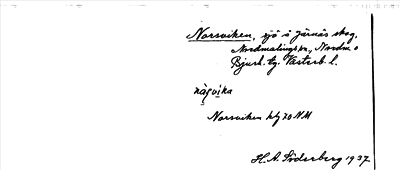 Norrviken, sjö i Järnäs skog,
Nordmalings sn, Nordm. o
Bjurh. tg. Västerb. l.
Norrviken hfg 70 NM
H. A. Söderberg 1937